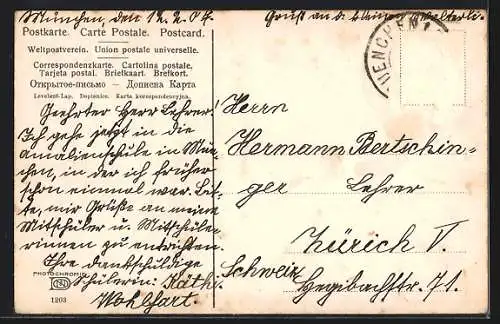 München, den 12.2.04.
Gruß an d.
Postkarte. Carte Postale. Postcard.
Weltpostverein. Union postale universelle.
Correspondenzkarte. Cartolina postale,
Tarjeta postal. Briefkaart. Brefkort.
Открытое-письмо — Дописна Карта
Levelezö-Lap. Dopisnice. Karta korespondencyjna.
MUENCHEN 1
Geehrter Herr Lehrer!
Ich gehe jetzt in die
Amalienschule in Mün-
chen, in der ich früher
schon einmal war. Bit-
te, mir Grüße an meine
Mitschüler u. Mitschüle-
rinnen zu entrichten.
Ihre dankschuldige
Schülerin: Käthi
Wohlfart.
PHOTOCHROMIE
1203
Herrn
Hermann Bertschin-
ger Lehrer
Zürich V.
Schweiz
Hegibachstr. 71.